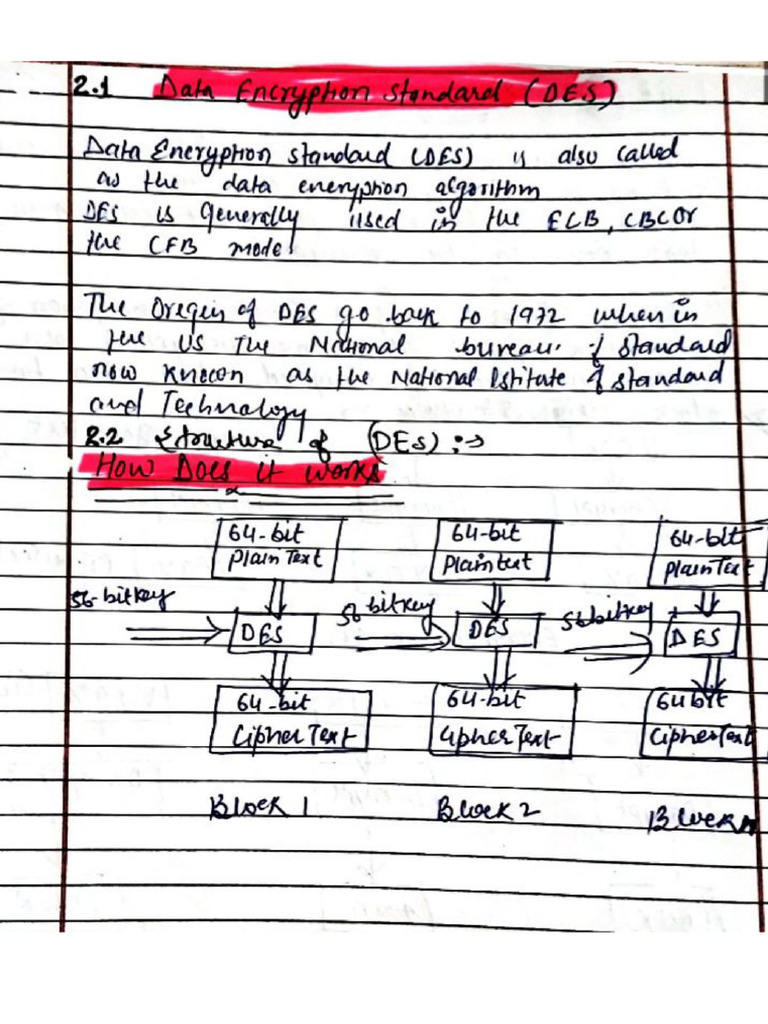 2.1 Data Encryption Standard (DES)
Data Encryption standard (DES) is also called
as the data encryption algorithm
DES is generally used in the ECB, CBC or
the CFB mode
The Oregin of DES go back to 1972 when in
the US The National bureau of standard
now known as the National Istitute of standard
and Technology
2.2 Structure of (DES) :→
How Does it works
64-bit 64-bit 64-bit
Plain Text Plaintext Plain Text
56-bit key 56 bit key 56 bit key
DES DES DES
64-bit 64-bit 64 bit
Cipher Text Cipher Text Cipher Text
Block 1 Block 2 Block n